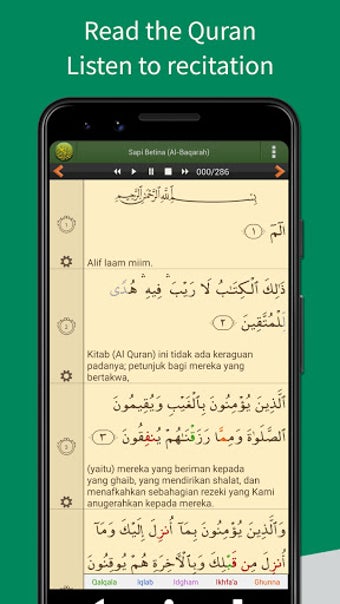 Read the Quran
Listen to recitation
Sapi Betina (Al-Baqarah)
000/286
بِسْمِ ٱللَّهِ ٱلرَّحْمَٰنِ ٱلرَّحِيمِ
1
الٓمٓ ﴿١﴾
Alif laam miim.
ذَٰلِكَ ٱلْكِتَـٰبُ لَا رَيْبَ ۛ فِيهِ ۛ هُدًى
2
لِّلْمُتَّقِينَ ﴿٢﴾
Kitab (Al Quran) ini tidak ada keraguan
padanya; petunjuk bagi mereka yang
bertakwa,
ٱلَّذِينَ يُؤْمِنُونَ بِٱلْغَيْبِ وَيُقِيمُونَ
3
ٱلصَّلَوٰةَ وَمِمَّا رَزَقْنَـٰهُمْ يُنفِقُونَ ﴿٣﴾
(yaitu) mereka yang beriman kepada
yang ghaib, yang mendirikan shalat, dan
menafkahkan sebahagian rezeki yang Kami
anugerahkan kepada mereka.
وَٱلَّذِينَ يُؤْمِنُونَ بِمَآ أُنزِلَ إِلَيْكَ وَمَآ
أُنزِلَ مِن قَبْلِكَ وَبِٱلْـَٔاخِرَةِ هُمْ يُوقِنُونَ
Qalqala Iqlab Idgham Ikhfa'a Ghunna